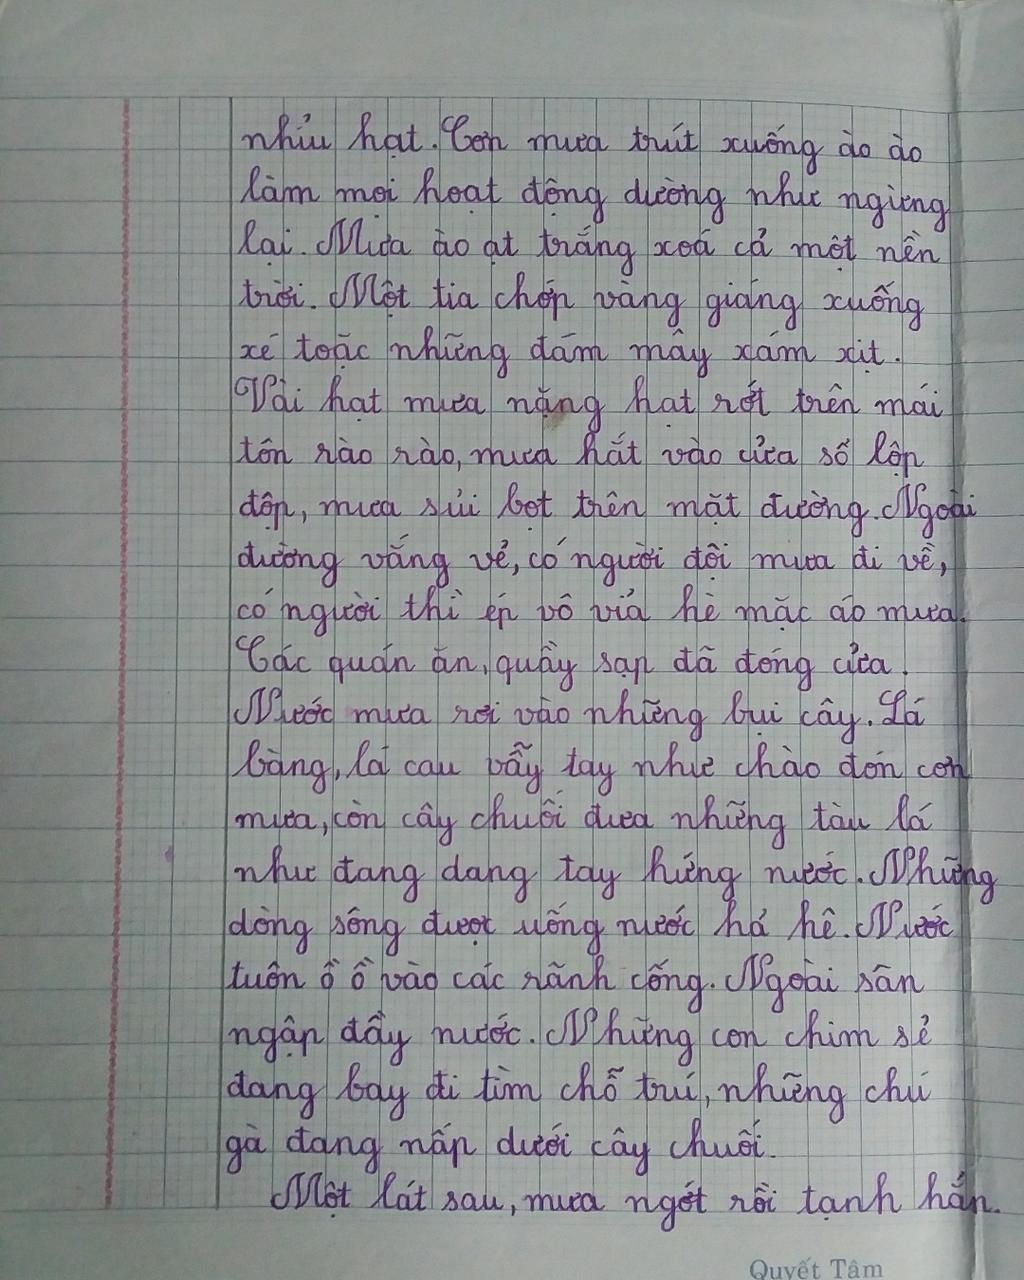 nhỉu hạt. Cơn mưa trút xuống ào ào
làm mọi hoạt động dường như ngừng
lại. Mưa ào ạt trắng xoá cả một nền
trời. Một tia chớp vàng giáng xuống
xé toặc những đám mây xám xịt.
Vài hạt mưa nặng hạt rớt trên mái
tôn rào rào, mưa hắt vào cửa sổ lộp
độp, mưa sủi bọt trên mặt đường. Ngoài
đường vắng vẻ, có người đội mưa đi về,
có người thì ép vô vỉa hè mặc áo mưa.
Các quán ăn, quầy sạp đã đóng cửa.
Nước mưa rơi vào những bụi cây. Lá
bàng, lá cau vẫy tay như chào đón cơn
mưa, còn cây chuối đưa những tàu lá
như đang dang tay hứng nước. Những
dòng sông được uống nước hả hê. Nước
tuôn ồ ồ vào các rãnh cống. Ngoài sân
ngập đầy nước. Những con chim sẻ
đang bay đi tìm chỗ trú, những chú
gà đang nấp dưới cây chuối.
Một lát sau, mưa ngớt rồi tạnh hẳn.
Quyết Tâm